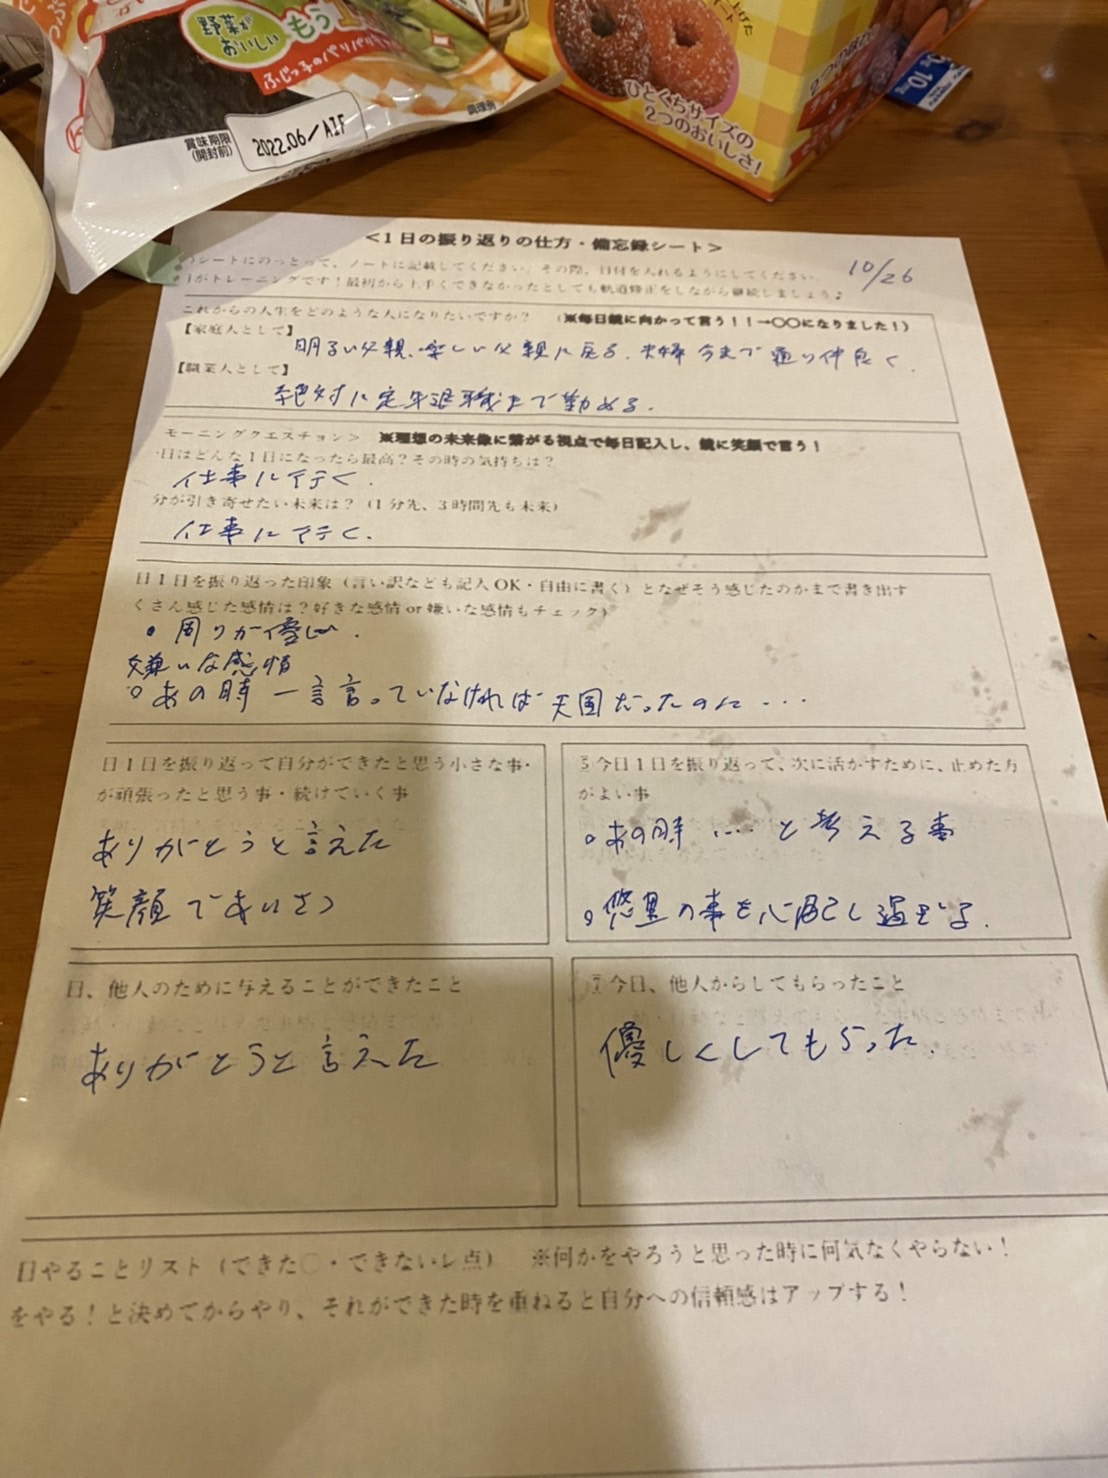 野菜が
おいしい
もう1
ふじっ子のパリパリ
調理例
賞味期限
(開封前)
2022.06/AIF
ひとくちサイズの
2つのおいしさ!
<1日の振り返りの仕方・備忘録シート>
10/26
シートにのっとって、ノートに記載してください。その際、日付を入れるようにしてください。
がトレーニングです!最初から上手くできなかったとしても軌道修正をしながら継続しましょう♪
これからの人生をどのような人になりたいですか? (※毎日鏡に向かって言う!!→〇〇になりました!)
【家庭人として】
明るい父親、楽しい父親に戻る。夫婦今まで通り仲良く.
【職業人として】
絶対に定年退職まで勤める.
モーニングクエスチョン> ※理想の未来像に繋がる視点で毎日記入し、鏡に笑顔で言う!
日はどんな1日になったら最高?その時の気持ちは?
仕事に行く.
分が引き寄せたい未来は?(1分先、3時間先も未来)
仕事に行く.
日1日を振り返った印象(言い訳なども記入OK・自由に書く)となぜそう感じたのかまで書き出す
くさん感じた感情は?好きな感情or嫌いな感情もチェック)
・周りが優しい.
嫌いな感情
○あの時一言言っていなければ天国だったのに・・・
日1日を振り返って自分ができたと思う小さな事・
が頑張ったと思う事・続けていく事
ありがとうと言えた
笑顔であいさつ
5今日1日を振り返って、次に活かすために、止めた方
がよい事
○あの時・・・と考える事
○悠里の事を心配し過ぎる.
日、他人のために与えることができたこと
ありがとうと言えた
7今日、他人からしてもらったこと
優しくしてもらった.
日やることリスト(できた〇・できないレ点) ※何かをやろうと思った時に何気なくやらない!
をやる!と決めてからやり、それができた時を重ねると自分への信頼感はアップする!